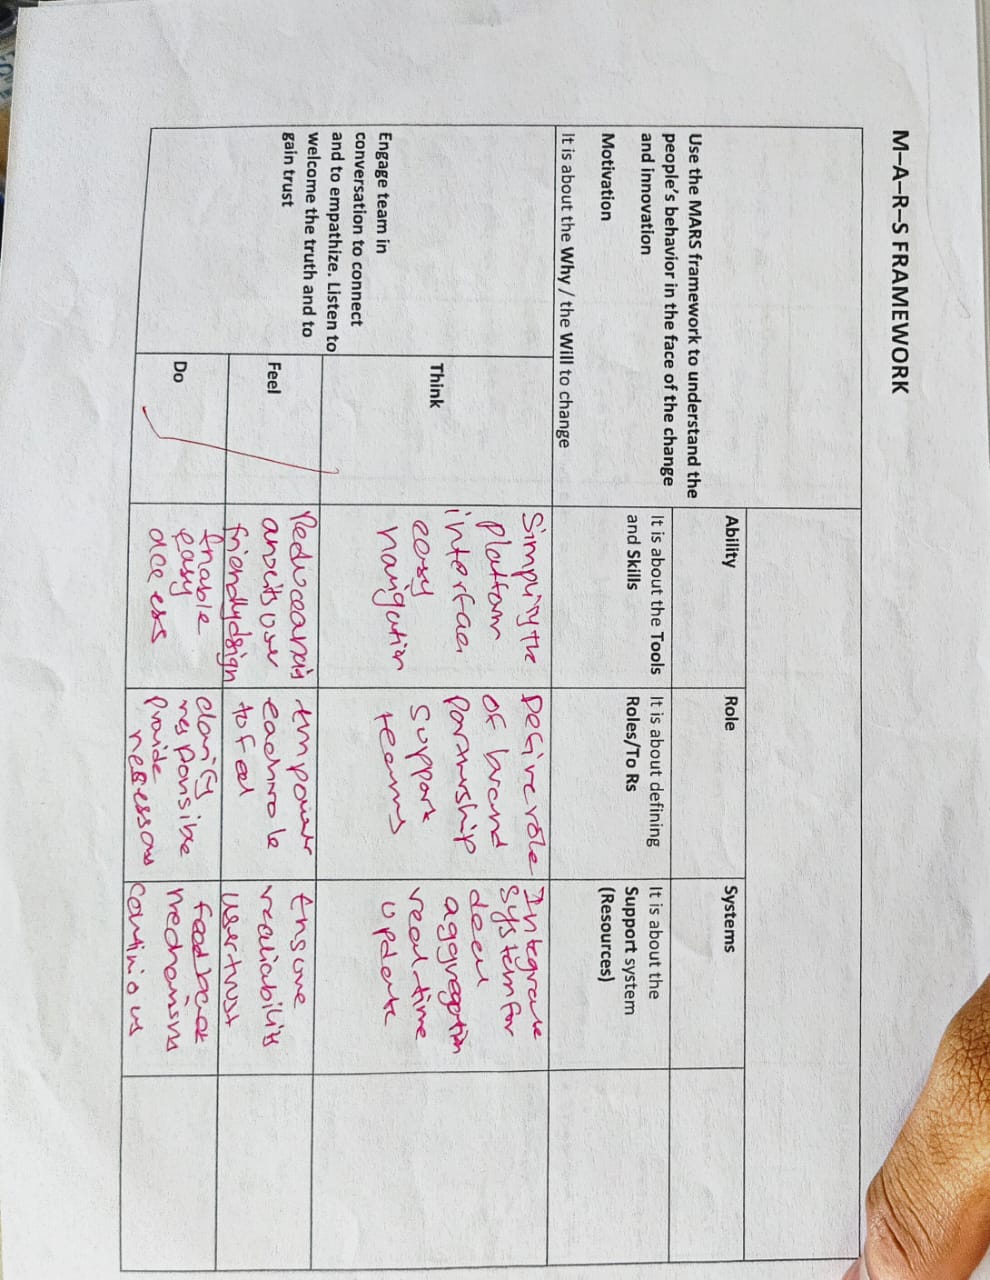 M–A–R–S FRAMEWORK
Use the MARS framework to understand the
people's behavior in the face of the change
and innovation
Motivation
It is about the Why / the Will to change
Ability
Role
Systems
It is about the Tools
and Skills
It is about defining
Roles/To Rs
It is about the
Support system
(Resources)
Engage team in
conversation to connect
and to empathize. Listen to
welcome the truth and to
gain trust
Think
Simplify the
platform
interface
easy
navigation
Define role
of brand
partnership
support
teams
Integrate
system for
deal
aggregation
real-time
update
Feel
user
friendly design
Empower
each role
to feel
Ensure
realiability
user trust
Do
Enable
easy
access
clarify
responsible
Provide
necessary
feedback
mechanisms